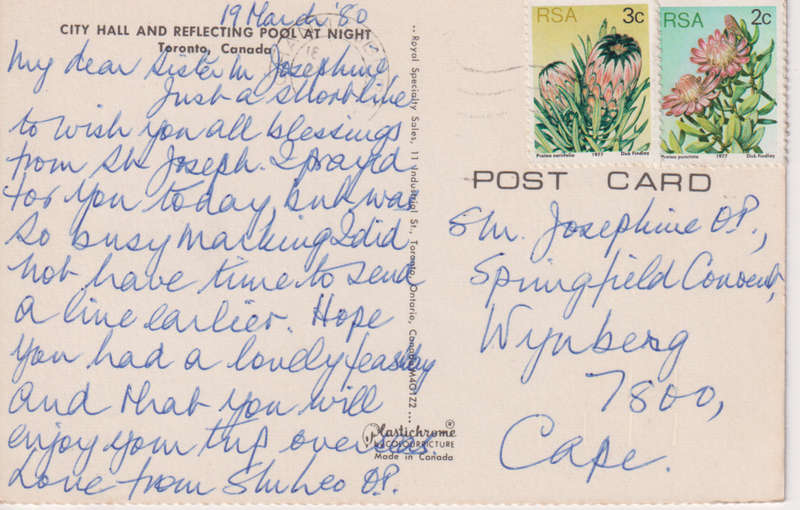 19 March '80
CITY HALL AND REFLECTING POOL AT NIGHT
Toronto, Canada
My dear Sister M Josephine
Just a short line
to wish you all blessings
from St. Joseph. I prayed
for you today, but was
so busy marking I did
not have time to send
a line earlier. Hope
you had a lovely feastday
and that you will
enjoy your trip overseas.
Love from
O.P.
Plastichrome®
COLOURPICTURE
Made in Canada
Royal Specialty Sales, 11 Industrial St., Toronto, Ontario, Canada M4G1Z2
RSA 3c
Protea neriifolia 1977 Dick Findlay
RSA 2c
Protea punctata 1977 Dick Findlay
POST CARD
Sr. Josephine O.P.,
Springfield Convent,
Wynberg
7800,
Cape.